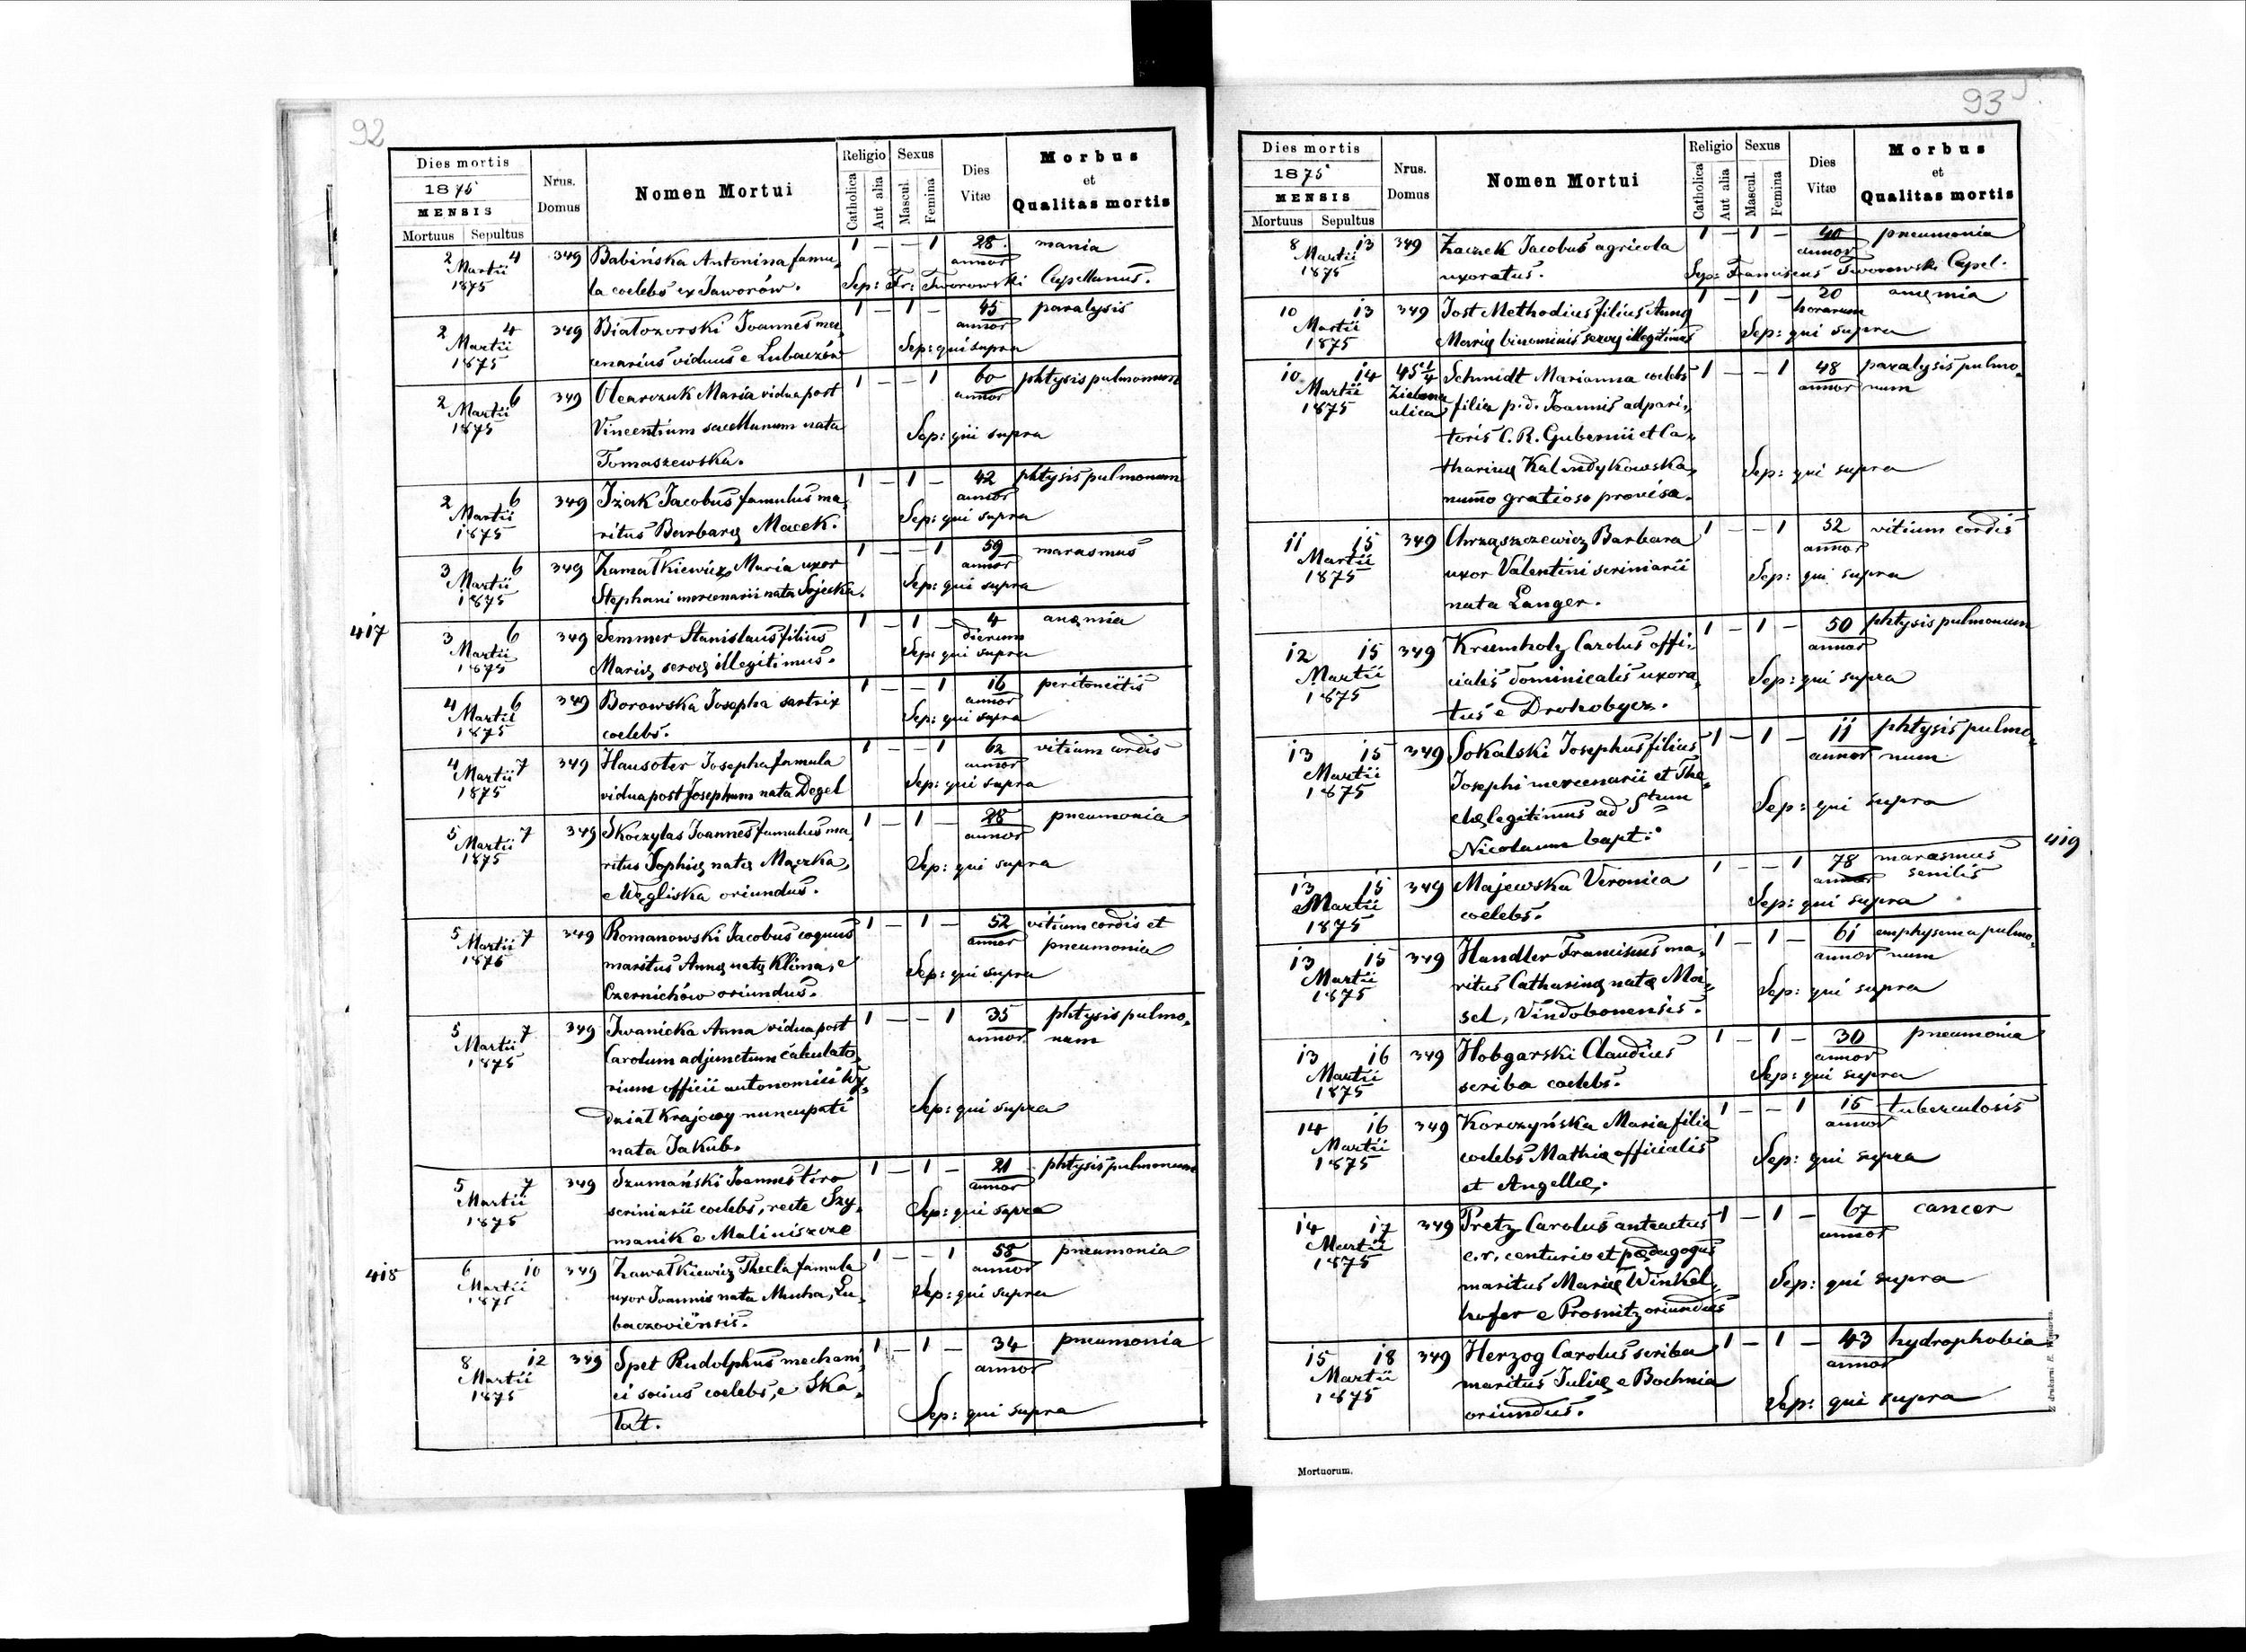 92
Dies mortis
1875
MENSIS
Mortuus Sepultus
Nrus. Domus
Nomen Mortui
Religio
Catholica
Aut alia
Sexus
Mascul.
Femina
Dies Vitæ
Morbus
et
Qualitas mortis
2 4 349 Babińska Antonina famu„ 1 — — 1 28 mania
Martii annor
1875 la coelebs ex Jaworów. Sep: Fr: Tworowski Capellanus.
2 4 349 Białozorski Joannes mer„ 1 — 1 — 45 paralysis
Martii annor
1875 cenarius viduus e Lubaczów Sep: qui supra
2 6 349 Olearczuk Maria vidua post 1 — — 1 60 phtysis pulmonum
Martii annor
1875 Vincentium sacellanum nata Sep: qui supra
Tomaszewska.
2 6 349 Iżak Jacobus famulus ma„ 1 — 1 — 42 phtysis pulmonum
Martii annor
1875 ritus Barbarę Macek. Sep: qui supra
3 6 349 Zamałkiewicz Maria uxor 1 — — 1 59 marasmus
Martii annor
1875 Stephani mercenarii nata Sojecka. Sep: qui supra
417
3 6 349 Semmer Stanislaus filius 1 — 1 — 4 anęmia
Martii dierum
1875 Marię servę illegitimus. Sep: qui supra
4 6 349 Borowska Josepha sartrix 1 — — 1 16 peritoneitis
Martii annor
1875 coelebs. Sep: qui supra
4 7 349 Hausoter Josepha famula 1 — — 1 62 vitium cordis
Martii annor
1875 vidua post Josephum nata Degel Sep: qui supra
5 7 349 Skoczylas Joannes famulus ma„ 1 — 1 — 28 pneumonia
Martii annor
1875 ritus Sophię natę Mączka, Sep: qui supra
e Węgliska oriundus.
5 7 349 Romanowski Jacobus coquus 1 — 1 — 52 vitium cordis et
Martii annor pneumonia
1875 maritus Annę natę Klima, e Sep: qui supra
Czernichów oriundus.
5 7 349 Iwanicka Anna vidua post 1 — — 1 35 phtysis pulmo„
Martii annor num
1875 Carolum adjunctum calculato„
rium officii autonomici Wy„
dział Krajowy nuncupati Sep: qui supra
nata Jakub.
5 7 349 Szumański Joannes tiro 1 — 1 — 21 phtysis pulmonum
Martii annor
1875 scriniarii coelebs, recte Szy„ Sep: qui supra
manik e Maliniszcze
418
6 10 349 Zawałkiewicz Thecla famula 1 — — 1 58 pneumonia
Martii annor
1875 uxor Joannis nata Mucha, Lu„ Sep: qui supra
baczoviensis.
8 12 349 Spet Rudolphus mechani„ 1 — 1 — 34 pneumonia
Martii annor
1875 ci socius coelebs, e Ska„ Sep: qui supra
łat.
93
Dies mortis
1875
MENSIS
Mortuus Sepultus
Nrus. Domus
Nomen Mortui
Religio
Catholica
Aut alia
Sexus
Mascul.
Femina
Dies Vitæ
Morbus
et
Qualitas mortis
8 13 349 Zaczek Jacobus agricola 1 — 1 — 40 pneumonia
Martii annor
1875 uxoratus. Sep: Franciscus Tworowski Capel.
10 13 349 Jost Methodius filius Annę 1 — 1 — 20 anęmia
Martii horarum
1875 Marię binominis servę illegitimus Sep: qui supra
10 14 45 1/4 Schmidt Marianna coelebs 1 — — 1 48 paralysis pulmo„
Martii Zielona annor num
1875 ulica filia p. d. Joannis adpari„
toris C. R. Gubernii et Ca„
tharinę Kalindykowska, Sep: qui supra
nummo gratioso provisa.
11 15 349 Chrząszczewicz Barbara 1 — — 1 52 vitium cordis
Martii annor
1875 uxor Valentini scriniarii Sep: qui supra
nata Langer.
12 15 349 Krumholz Carolus offi„ 1 — 1 — 50 phtysis pulmonum
Martii annor
1875 cialis dominicalis uxora„ Sep: qui supra
tus e Drohobycz.
13 15 349 Sokalski Josephus filius 1 — 1 — 11 phtysis pulmo„
Martii annor num
1875 Josephi mercenarii et The„
clę legitimus ad Stum Sep: qui supra
Nicolaum bapt:
419
13 15 349 Majewska Veronica 1 — — 1 78 marasmus
Martii annor senilis
1875 coelebs. Sep: qui supra
13 15 349 Handler Franciscus ma„ 1 — 1 — 61 emphysema pulmo„
Martii annor num
1875 ritus Catharinę natę Moi„ Sep: qui supra
sel, Vindobonensis.
13 16 349 Hobgarski Claudius 1 — 1 — 30 pneumonia
Martii annor
1875 scriba coelebs. Sep: qui supra
14 16 349 Korczyńska Maria filia 1 — — 1 15 tuberculosis
Martii annor
1875 coelebs Mathię officialis Sep: qui supra
et Angellę.
14 17 349 Pretz Carolus anteactus 1 — 1 — 67 cancer
Martii annor
1875 c. r. centurio et pędagogus
maritus Marię Winkel„ Sep: qui supra
hofer e Prosnitz oriundus
15 18 349 Herzog Carolus scriba 1 — 1 — 43 hydrophobia
Martii annor
1875 maritus Julię e Bochnia Sep: qui supra
oriundus.
Mortuorum.
Z drukarni E. Winiarza.